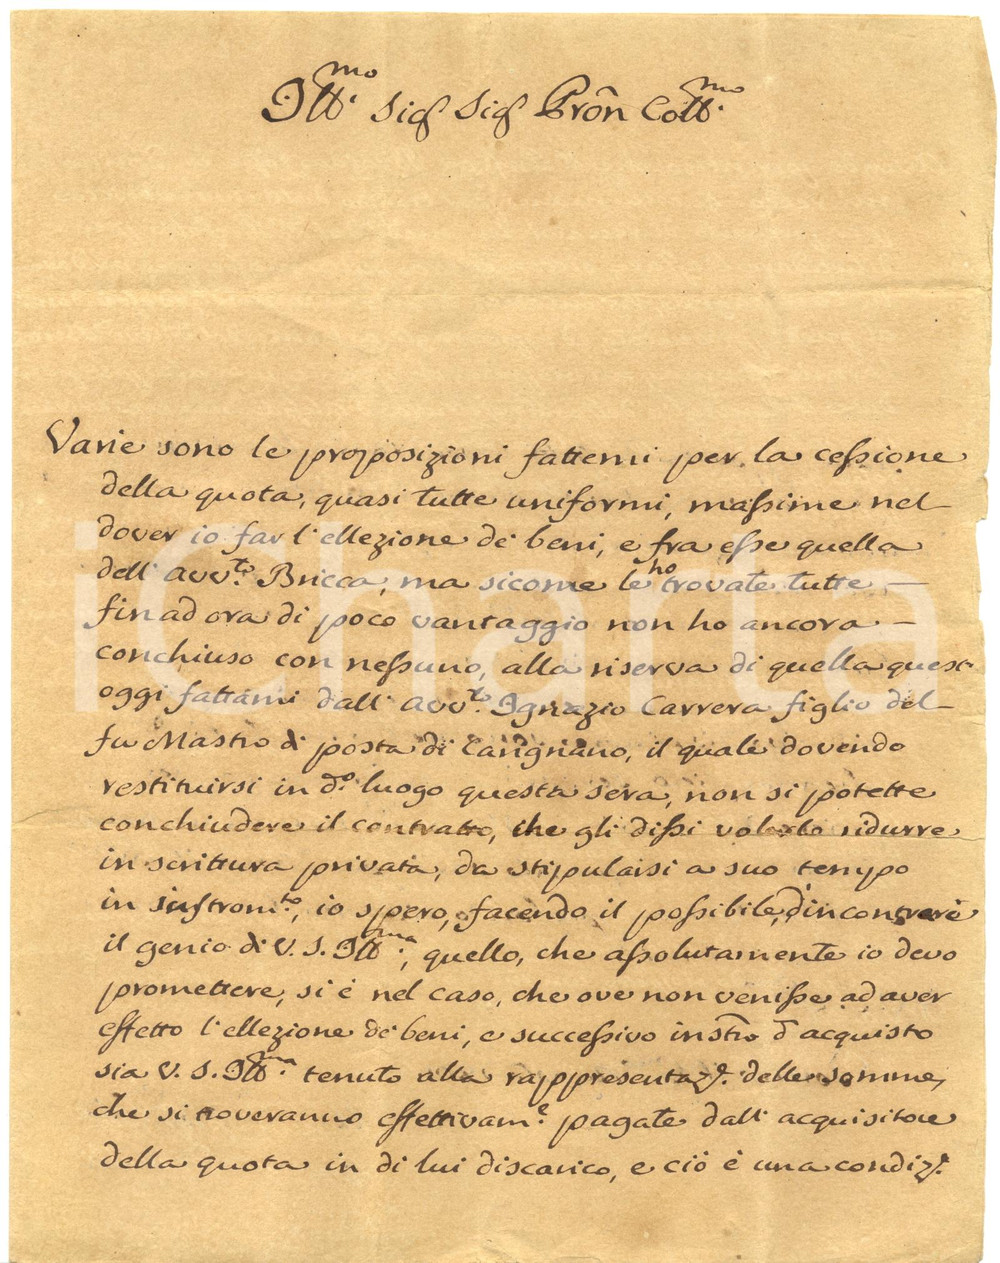 Ill.mo Sig.r Sig.r Prōn Coll.mo
Varie sono le proposizioni fattemi per la cessione
della quota, quasi tutte uniformi, massime nel
dover io far l'ellezione de' beni, e fra esse quella
dell' Avv.to Bricca, ma sicome le ho trovate tutte –
fin ad ora di poco vantaggio non ho ancora –
conchiuso con nessuno, alla riserva di quella quest'
oggi fattami dall' Avv.to Ignazio Carrera figlio del
fu Mastro di posta di Carignano, il quale dovendo
restituirsi in d.o luogo questa sera, non si potette
conchiudere il contratto, che gli dissi volerlo ridurre
in scrittura privata, da stipularsi a suo tempo
in instrom.to, io spero, facendo il possibile, d'incontrare
il genio di V. S. Ill.ma, quello, che assolutamente io devo
promettere, si è nel caso, che ove non venisse ad aver
effetto l'ellezione de' beni, e successivo instrō d'acquisto
sia V. S. Ill.ma tenuto alla rappresentaz.e delle somme,
che si troveranno effettivam.e pagate dall' acquisitore
della quota in di lui discarico, e ciò è una condiz.e
icharta